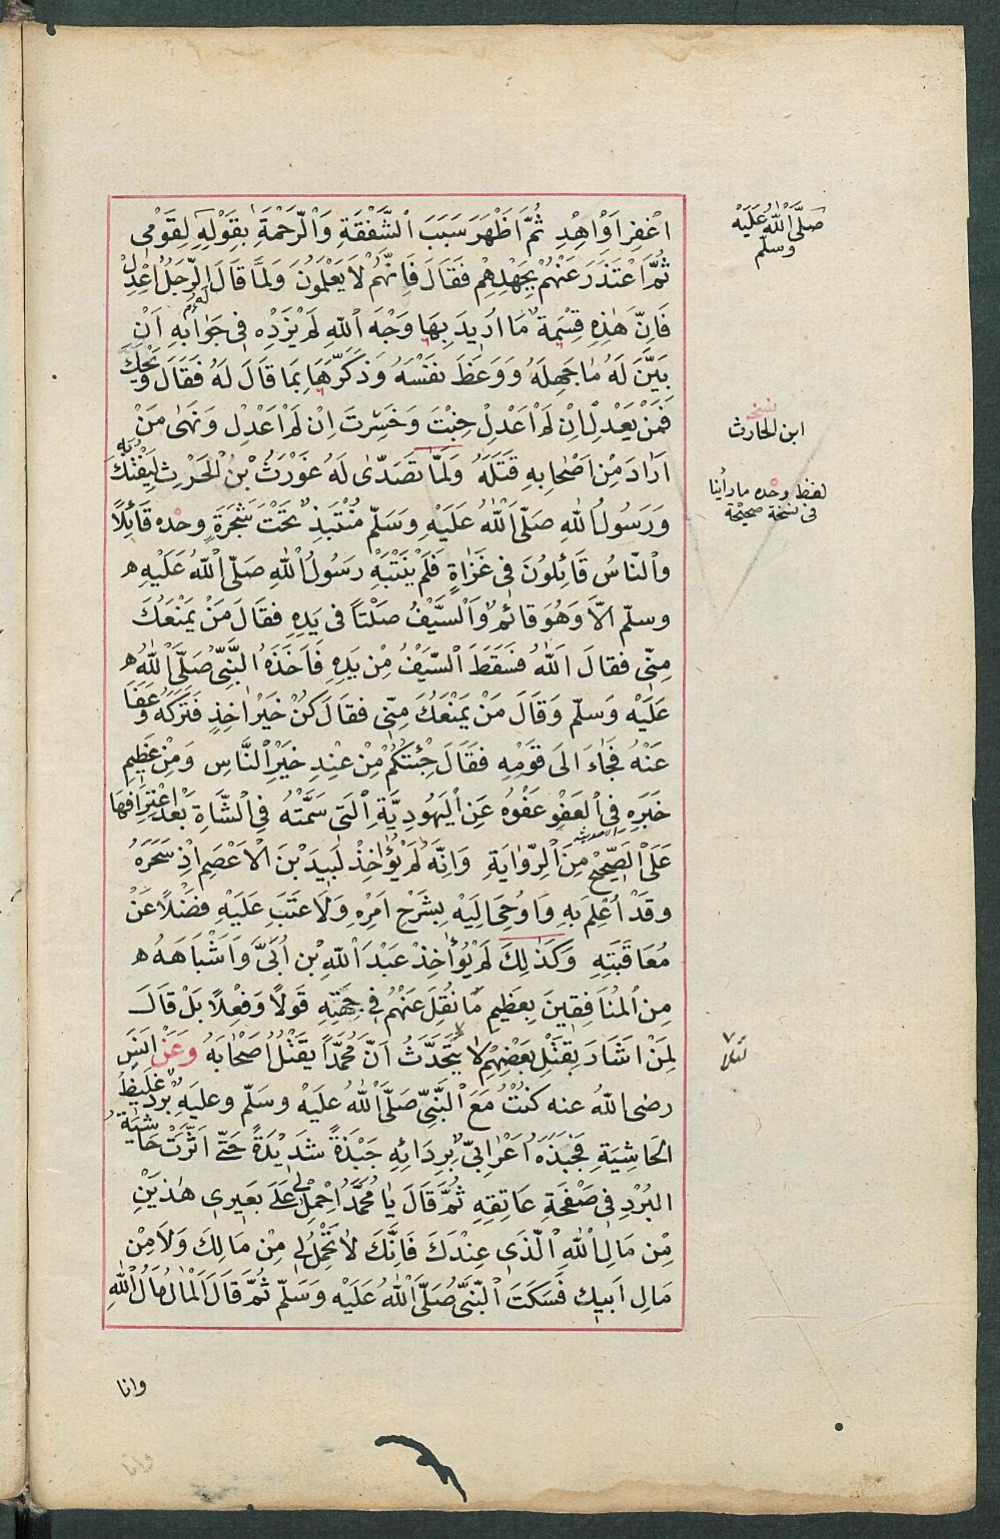 اغْفِرْ اَوْ اهْدِ ثُمَّ اَظْهَرَ سَبَبَ الشَّفَقَةِ وَالرَّحْمَةَ بِقَوْلِهِ لِقَوْمِى
ثُمَّ اعْتَذَرَ عَنْهُمْ بِجَهْلِهِمْ فَقَالَ فَاِنَّهُمْ لَا يَعْلَمُونَ وَلَمَّا قَالَ الرَّجُلُ اعْدِلْ
فَاِنَّ هٰذِهِ قِسْمَةٌ مَا اُرِيدَ بِهَا وَجْهَ اللهِ لَمْ يَزِدْهُ فِى جَوَابِهِ اَنْ
بَيَّنَ لَهُ مَا جَهِلَهُ وَوَعَظَ نَفْسَهُ وَذَكَّرَهَا بِمَا قَالَ لَهُ فَقَالَ وَيْحَكَ
فَمَنْ يَعْدِلُ اِنْ لَمْ اَعْدِلْ خِبْتَ وَخَسِرْتَ اِنْ لَمْ اَعْدِلْ وَنَهٰى مَنْ
اَرَادَ مِنْ اَصْحَابِهِ قَتْلَهُ وَلَمَّا تَصَدّٰى لَهُ غَوْرَثُ بْنُ الْحَرْثِ لِيَفْتِكَ
وَرَسُولُ اللهِ صَلَّى اللهُ عَلَيْهِ وَسَلَّم مُنْتَبِذٌ تَحْتَ شَجَرَةٍ وحْده قَائِلًا
وَالنَّاسُ قَائِلُونَ فِى غَزَاةٍ فَلَمْ يَنْتَبِهْ رَسُولُ اللهِ صَلَّى اللهُ عَلَيْهِ
وسلّم اِلَّا وَهُوَ قَائِمٌ وَالسَّيْفُ صَلْتًا فى يَدِهِ فقَالَ مَنْ يَمْنَعُكَ
مِنِّى فقالَ اَللهُ فسَقَطَ السَّيْفُ مِنْ يَدِهِ فَاَخَذَهُ النَّبِىُّ صَلَّى اللهُ
عَلَيْهِ وَسلّم وَقَالَ مَنْ يَمْنَعُكَ مِنِّى فقَالَ كُنْ خَيْرَ اٰخِذٍ فَتَرَكَهُ وَعَفَا
عَنْهُ فَجَاءَ اِلَى قَوْمِهِ فقَالَ جِئْتُكُمْ مِنْ عِنْدِ خَيْرِ النَّاسِ وَمِنْ عَظِيمِ
خَبَرِهِ فِى الْعَفْوِ عَفْوُهُ عَنِ الْيَهُودِيَّةِ الَّتِى سَمَّتْهُ فِى الشَّاةِ بَعْدَ اعْتِرَافِهَا
عَلَى الصَّحِيْحِ مِنَ الرِّوَايَةِ وَانَّهُ لَمْ يُؤَاخِذْ لَبِيدَ بْنَ الْاَعْصَمِ اِذْ سَحَرَهُ
وقَدْ اُعْلِمَ بِهِ وَاُوحِىَ اِلَيْهِ بِشَرْحِ اَمْرِهِ وَلَا عَتَبَ عَلَيْهِ فَضْلًا عَنْ
مُعَاقَبَتِهِ وَكَذٰلِكَ لَمْ يُؤَاخِذْ عَبْدَ اللهِ بْنِ اُبَىٍّ وَاَشْبَاهَهُ
مِنَ الْمُنَافِقِينَ بِعَظِيمِ مَا نُقِلَ عَنْهُمْ فِى جِهَتِهِ قَوْلًا وَفِعْلًا بَلْ قَالَ
لِمَنْ اَشَارَ بِقَتْلِ بَعْضِهِمْ لَا يُتَحَدَّثُ اَنَّ مُحَمَّدًا يَقْتُلُ اَصْحَابَهُ وَعَنْ اَنَسٍ
رضى اللهُ عنه كُنْتُ مَعَ النَّبِىِّ صَلَّى اللهُ عَلَيْهِ وَسَلّم وعَلَيْهِ بُرْدٌ غَلِيظُ
الْحَاشِيَةِ فَجَبَذَهُ اَعْرَابِىٌّ بِرِدَائِهِ جَبْذَةً شَدِيْدَةً حَتّٰى اَثَّرَتْ حَاشِيَةُ
الْبُرْدِ فِى صَفْحَةِ عَاتِقِهِ ثُمَّ قَالَ يَا مُحَمَّدُ احْمِلْ لِى عَلَى بَعِيرِى هٰذَيْنِ
مِنْ مَالِ اللهِ الَّذِى عِنْدَكَ فَاِنَّكَ لَا تَحْمِلُ لِى مِنْ مَالِكَ وَلَا مِنْ
مَالِ اَبِيكَ فَسَكَتَ النَّبِىُّ صَلَّى اللهُ عَلَيْه وَسَلّم ثُمَّ قَالَ اَلْمَالُ مَالُ اللهِ
وانا
صَلَّى اللهُ عَلَيْهِ
وسلّم
نسخه
ابن الحارث
لفظ وحْده ما رأينا
فى نسخة صحيحة
لئلا